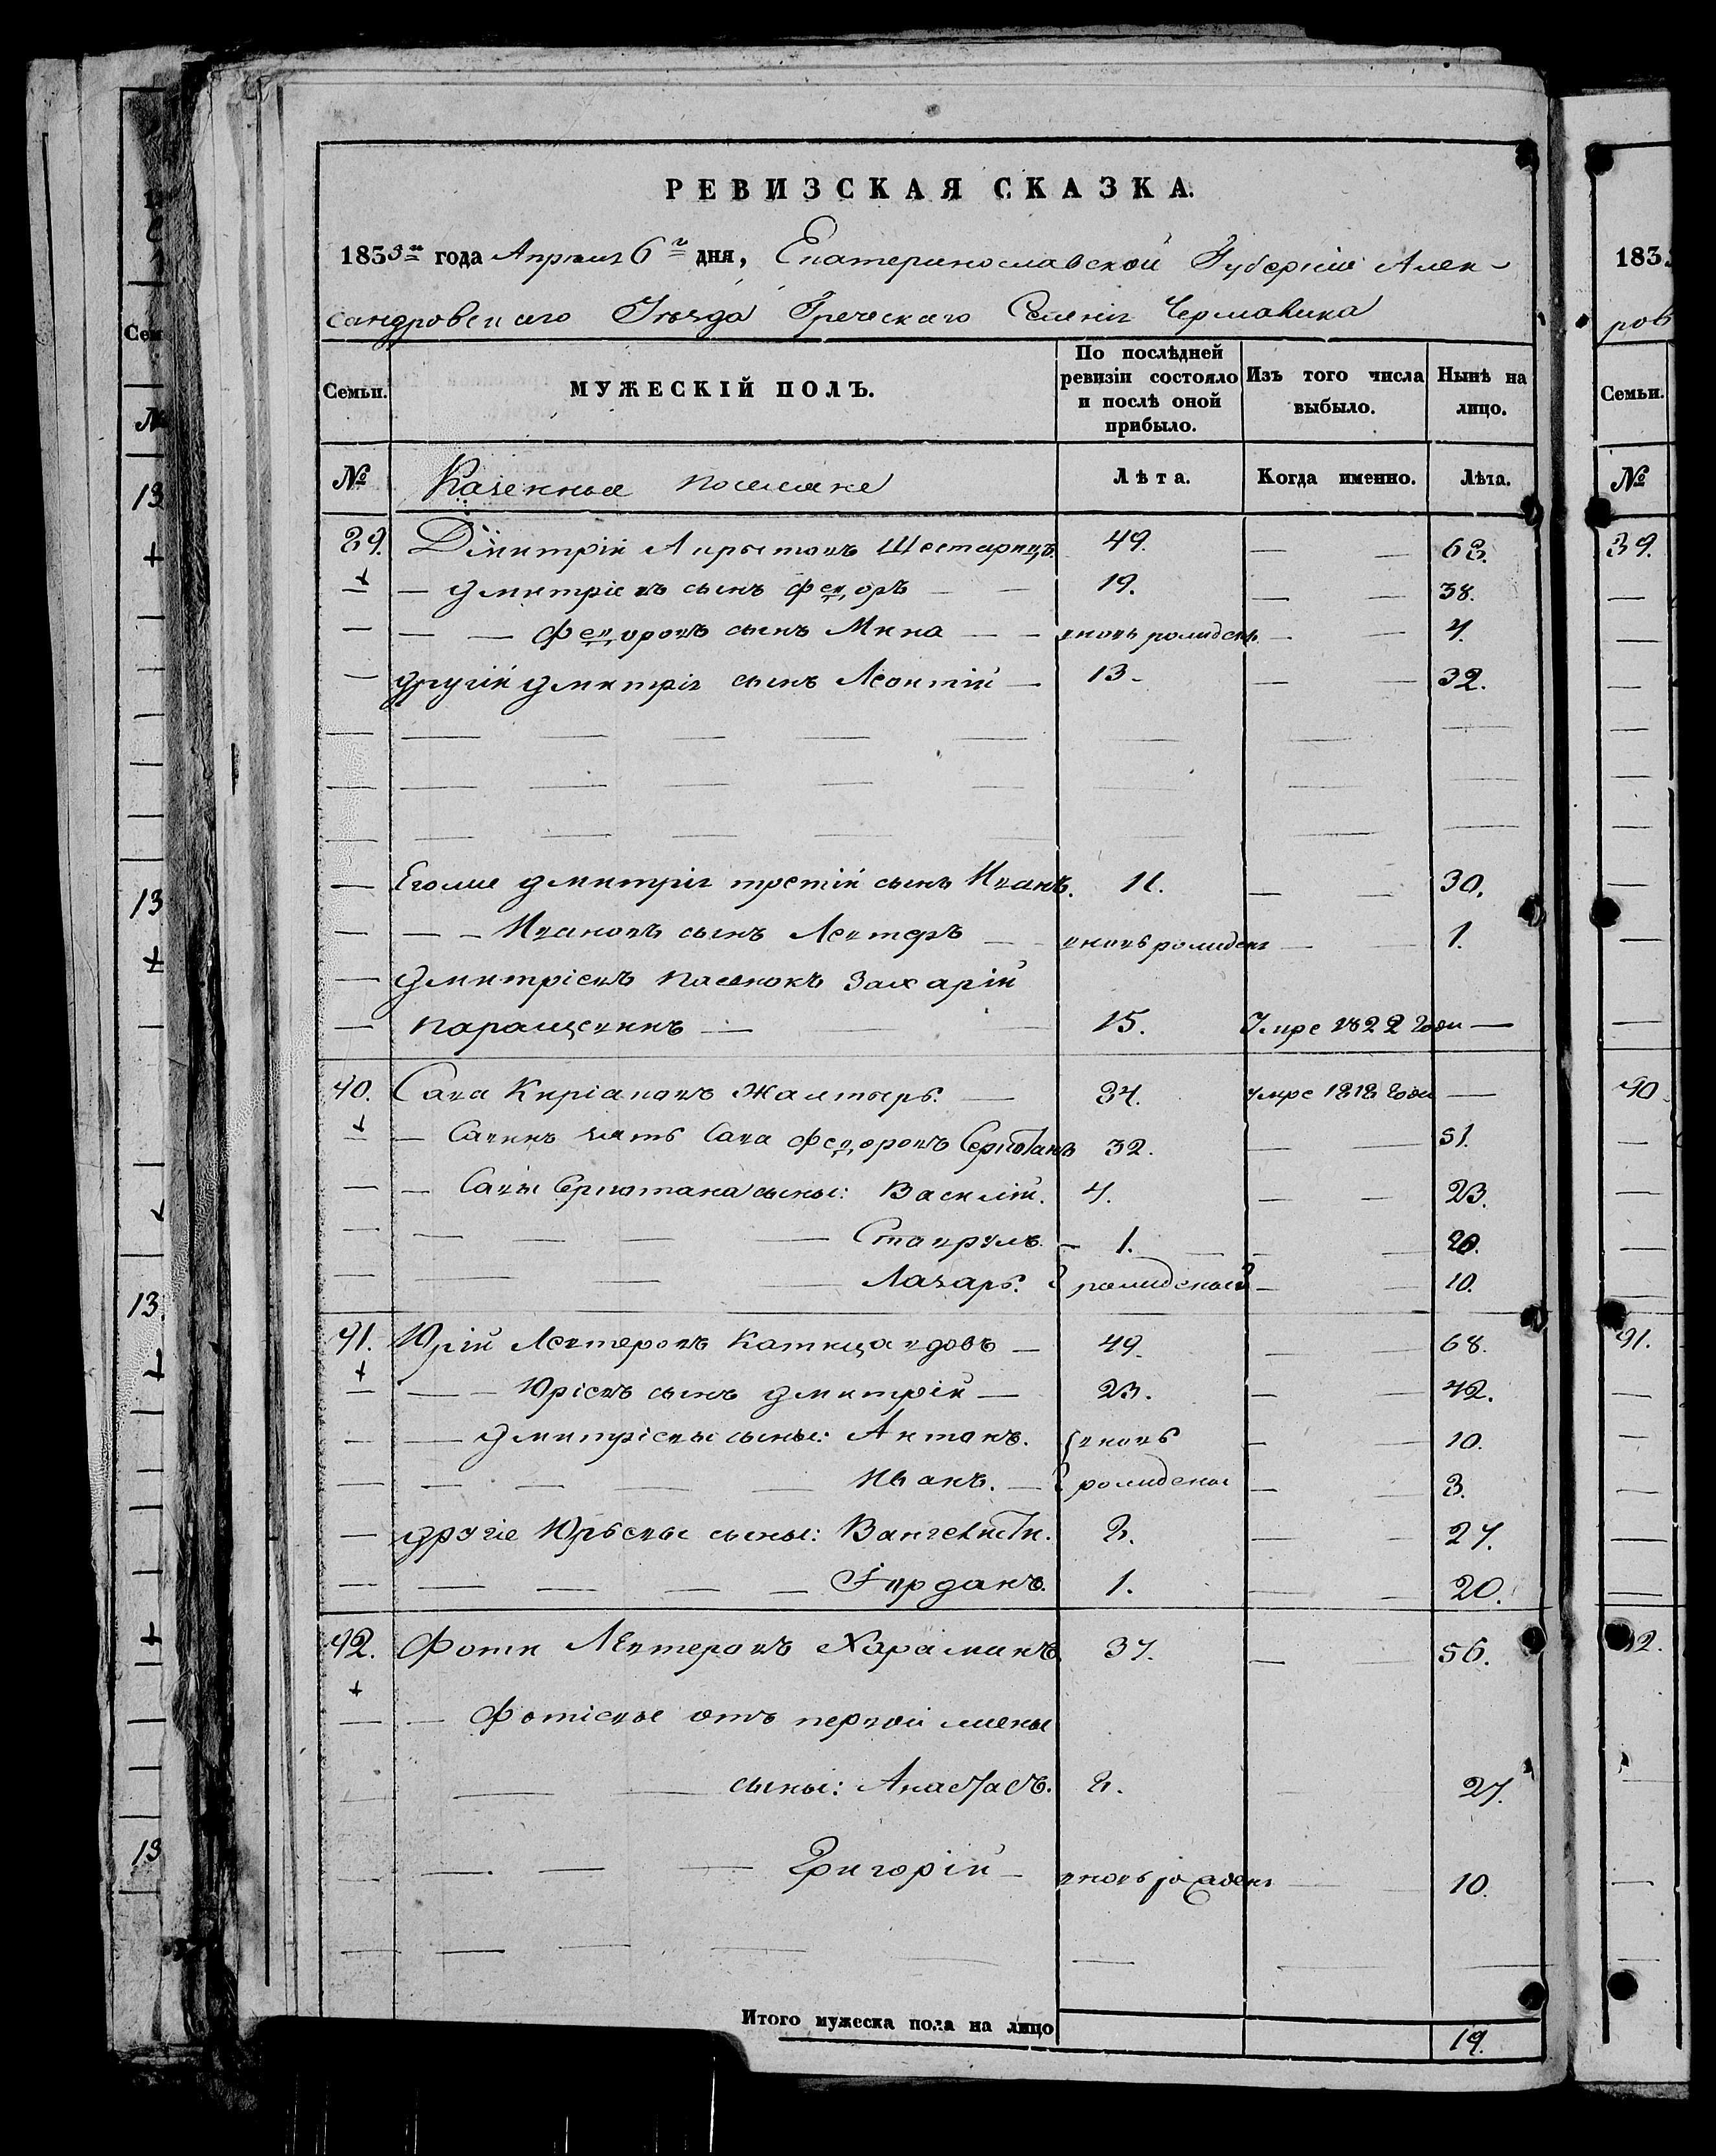 РЕВИЗСКАЯ СКАЗКА.
1835го года Апреля 6го дня, Екатеринославской Губерніи Алек-
сандровскаго Уезда Греческаго Селенія Чермалика
Семьи. МУЖЕСКІЙ ПОЛЪ. По послѣдней ревизіи состояло и послѣ оной прибыло. Изъ того числа выбыло. Нынѣ на лицо.
№ Казенные поселяне Лѣта. Когда именно. Лѣта.
39. Дмитрій Шестарецъ 49. — — 68.
— — Дмитріевъ сынъ Федоръ — — 19. — — 38.
— — — Федоровъ сынъ Мина — — вновь рожденъ — — 4.
— другій Дмитрія сынъ Леонтій — 13 — — — 32.
— Егоже Дмитрія третій сынъ Иванъ. 11. — — 30.
— — — Ивановъ сынъ Левтеръ — — вновь рожденъ — — 1.
— Дмитріевъ пасенокъ Захарій
— Паращевинъ — — 15. Умре 1822 Года —
40. Сава Киріаковъ Жалтырь. — 34. умре 1818 Года —
— — Савинъ зять Сава Федоровъ 32. — — 51.
— — Савы сыны: Василій. 4. — — 23.
— — — — — Ставрулъ — 1. — — — 20.
— — — — Лазарь. рожденый — 10.
41. Юрій Левтеровъ — 49. — — 68.
— — — Юріевъ сынъ Дмитрій — 23. — — 42.
— — Дмитріевы сыны: Антонъ. вновь — — 10.
— — — — — Иванъ. — рождены — — 3.
— другіе Юрьевы сыны: Вангелисти. 8. — — 27.
— — — — — Іорданъ. 1. — — 20.
42. Фоти Левтеровъ Хараманъ 37. — — 56.
— — Фотіевы отъ первой жены
— — — сыны: Анастасъ. 8. — — 27.
— — — — Григорій — вновь рожденъ — — 10.
Итого мужеска пола на лицо 19.
183
ров
Семьи.
№
39.
40
41.
42.
Сем
№
13
13
13
13